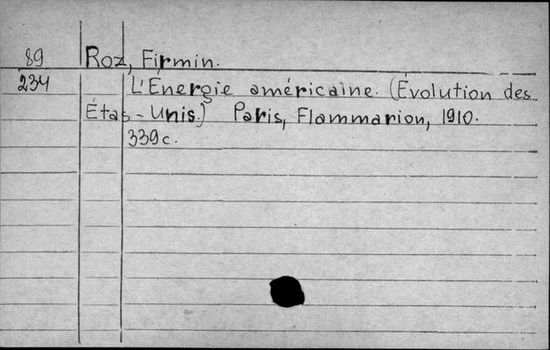 89
234
Roz, Firmin.
L'Énergie américaine. (Évolution des
États-Unis.) Paris, Flammarion, 1910.
339c.